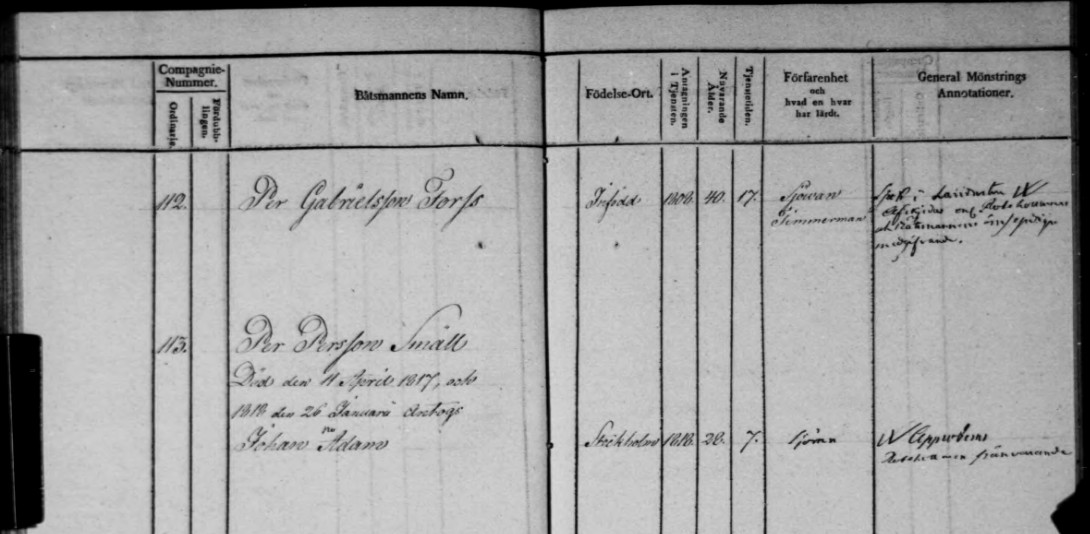 Compagnie-
Nummer.
Ordinarie.
Fördubb-
lingen.
Båtsmannens Namn.
Födelse-Ort.
Antagningen
i Tjensten.
Nuvarande
Ålder.
Tjenstetiden.
Förfarenhet
och
hvad en hvar
har lärdt.
General Mönstrings
Annotationer.
112. Per Gabrielsson Forss Infödd 1808. 40. 17. Sjöwan
Timmerman
i
medgifvande.
113. Per Persson Smäll
Död den 11 April 1817, och
1818 den 26 Januarii Antogs
Johan Adam Stockholm 1818. 28. 7. Sjöman
frånvarande